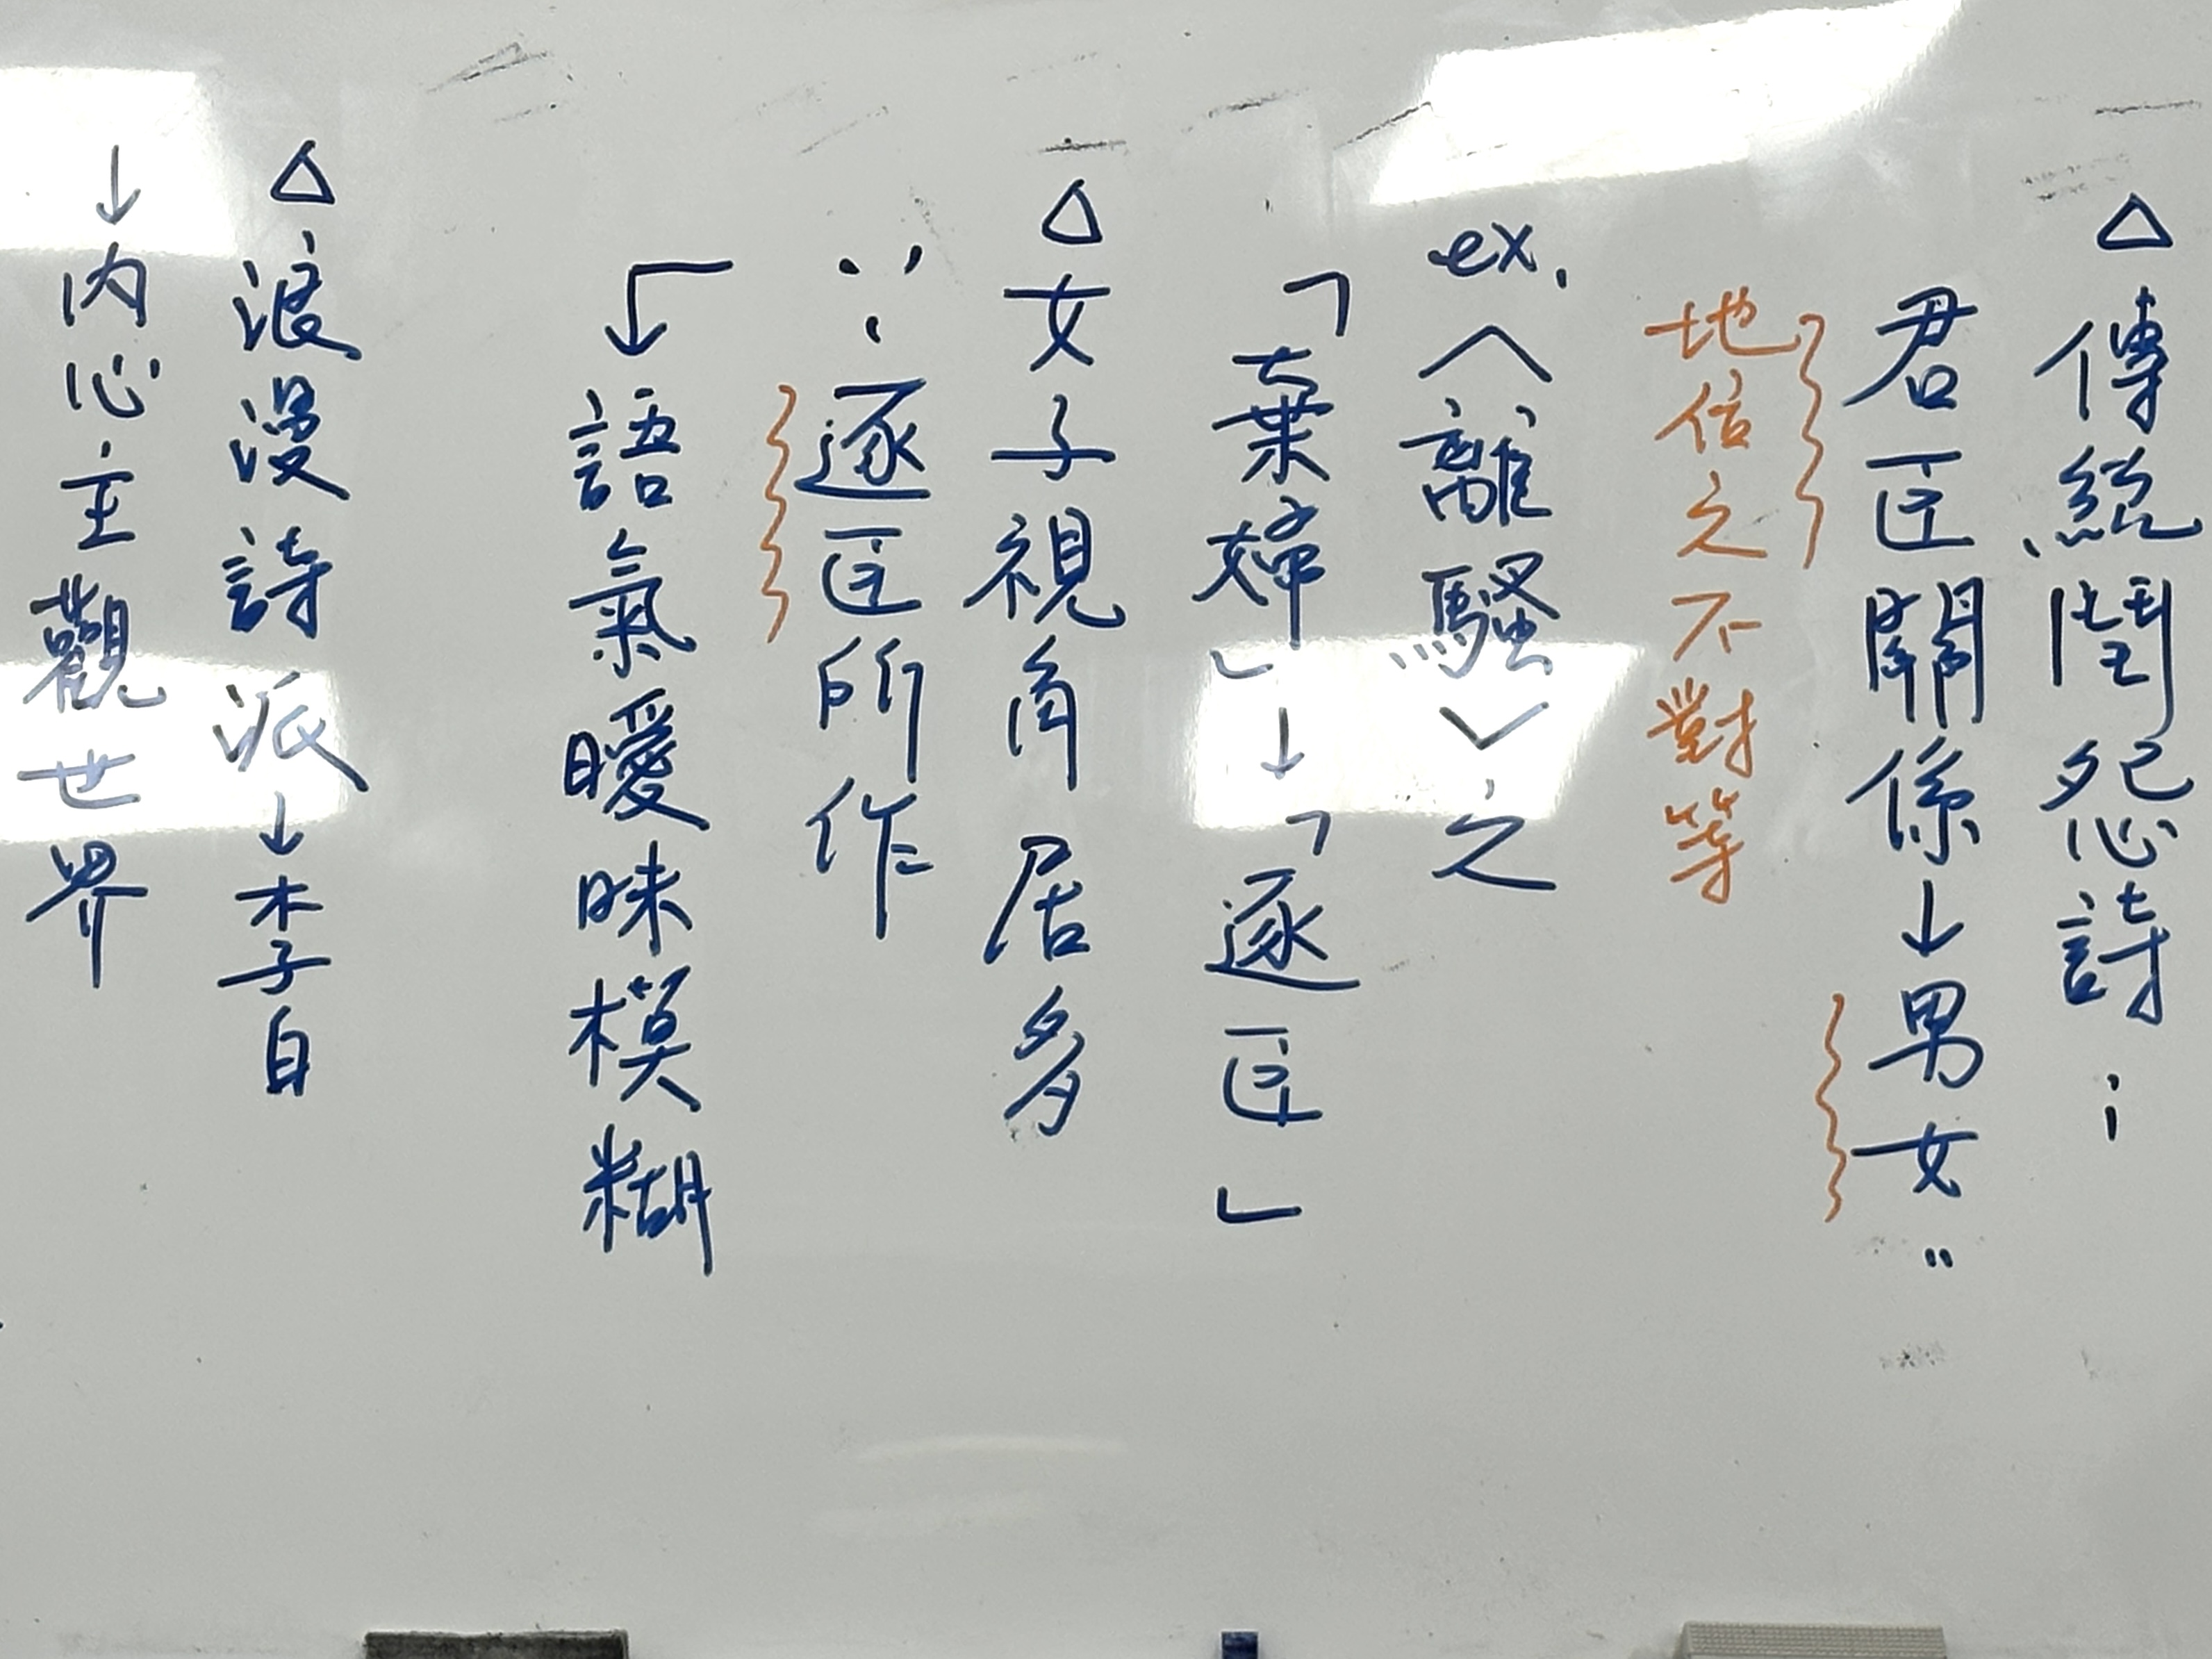 △傳統閨怨詩：
君臣關係→男女"
地位之不對等
ex.〈離騷〉之
「棄婦」→「逐臣」
△女子視角居多
∵逐臣所作
↳語氣曖昧模糊
△浪漫詩派→李白
→內心主觀世界